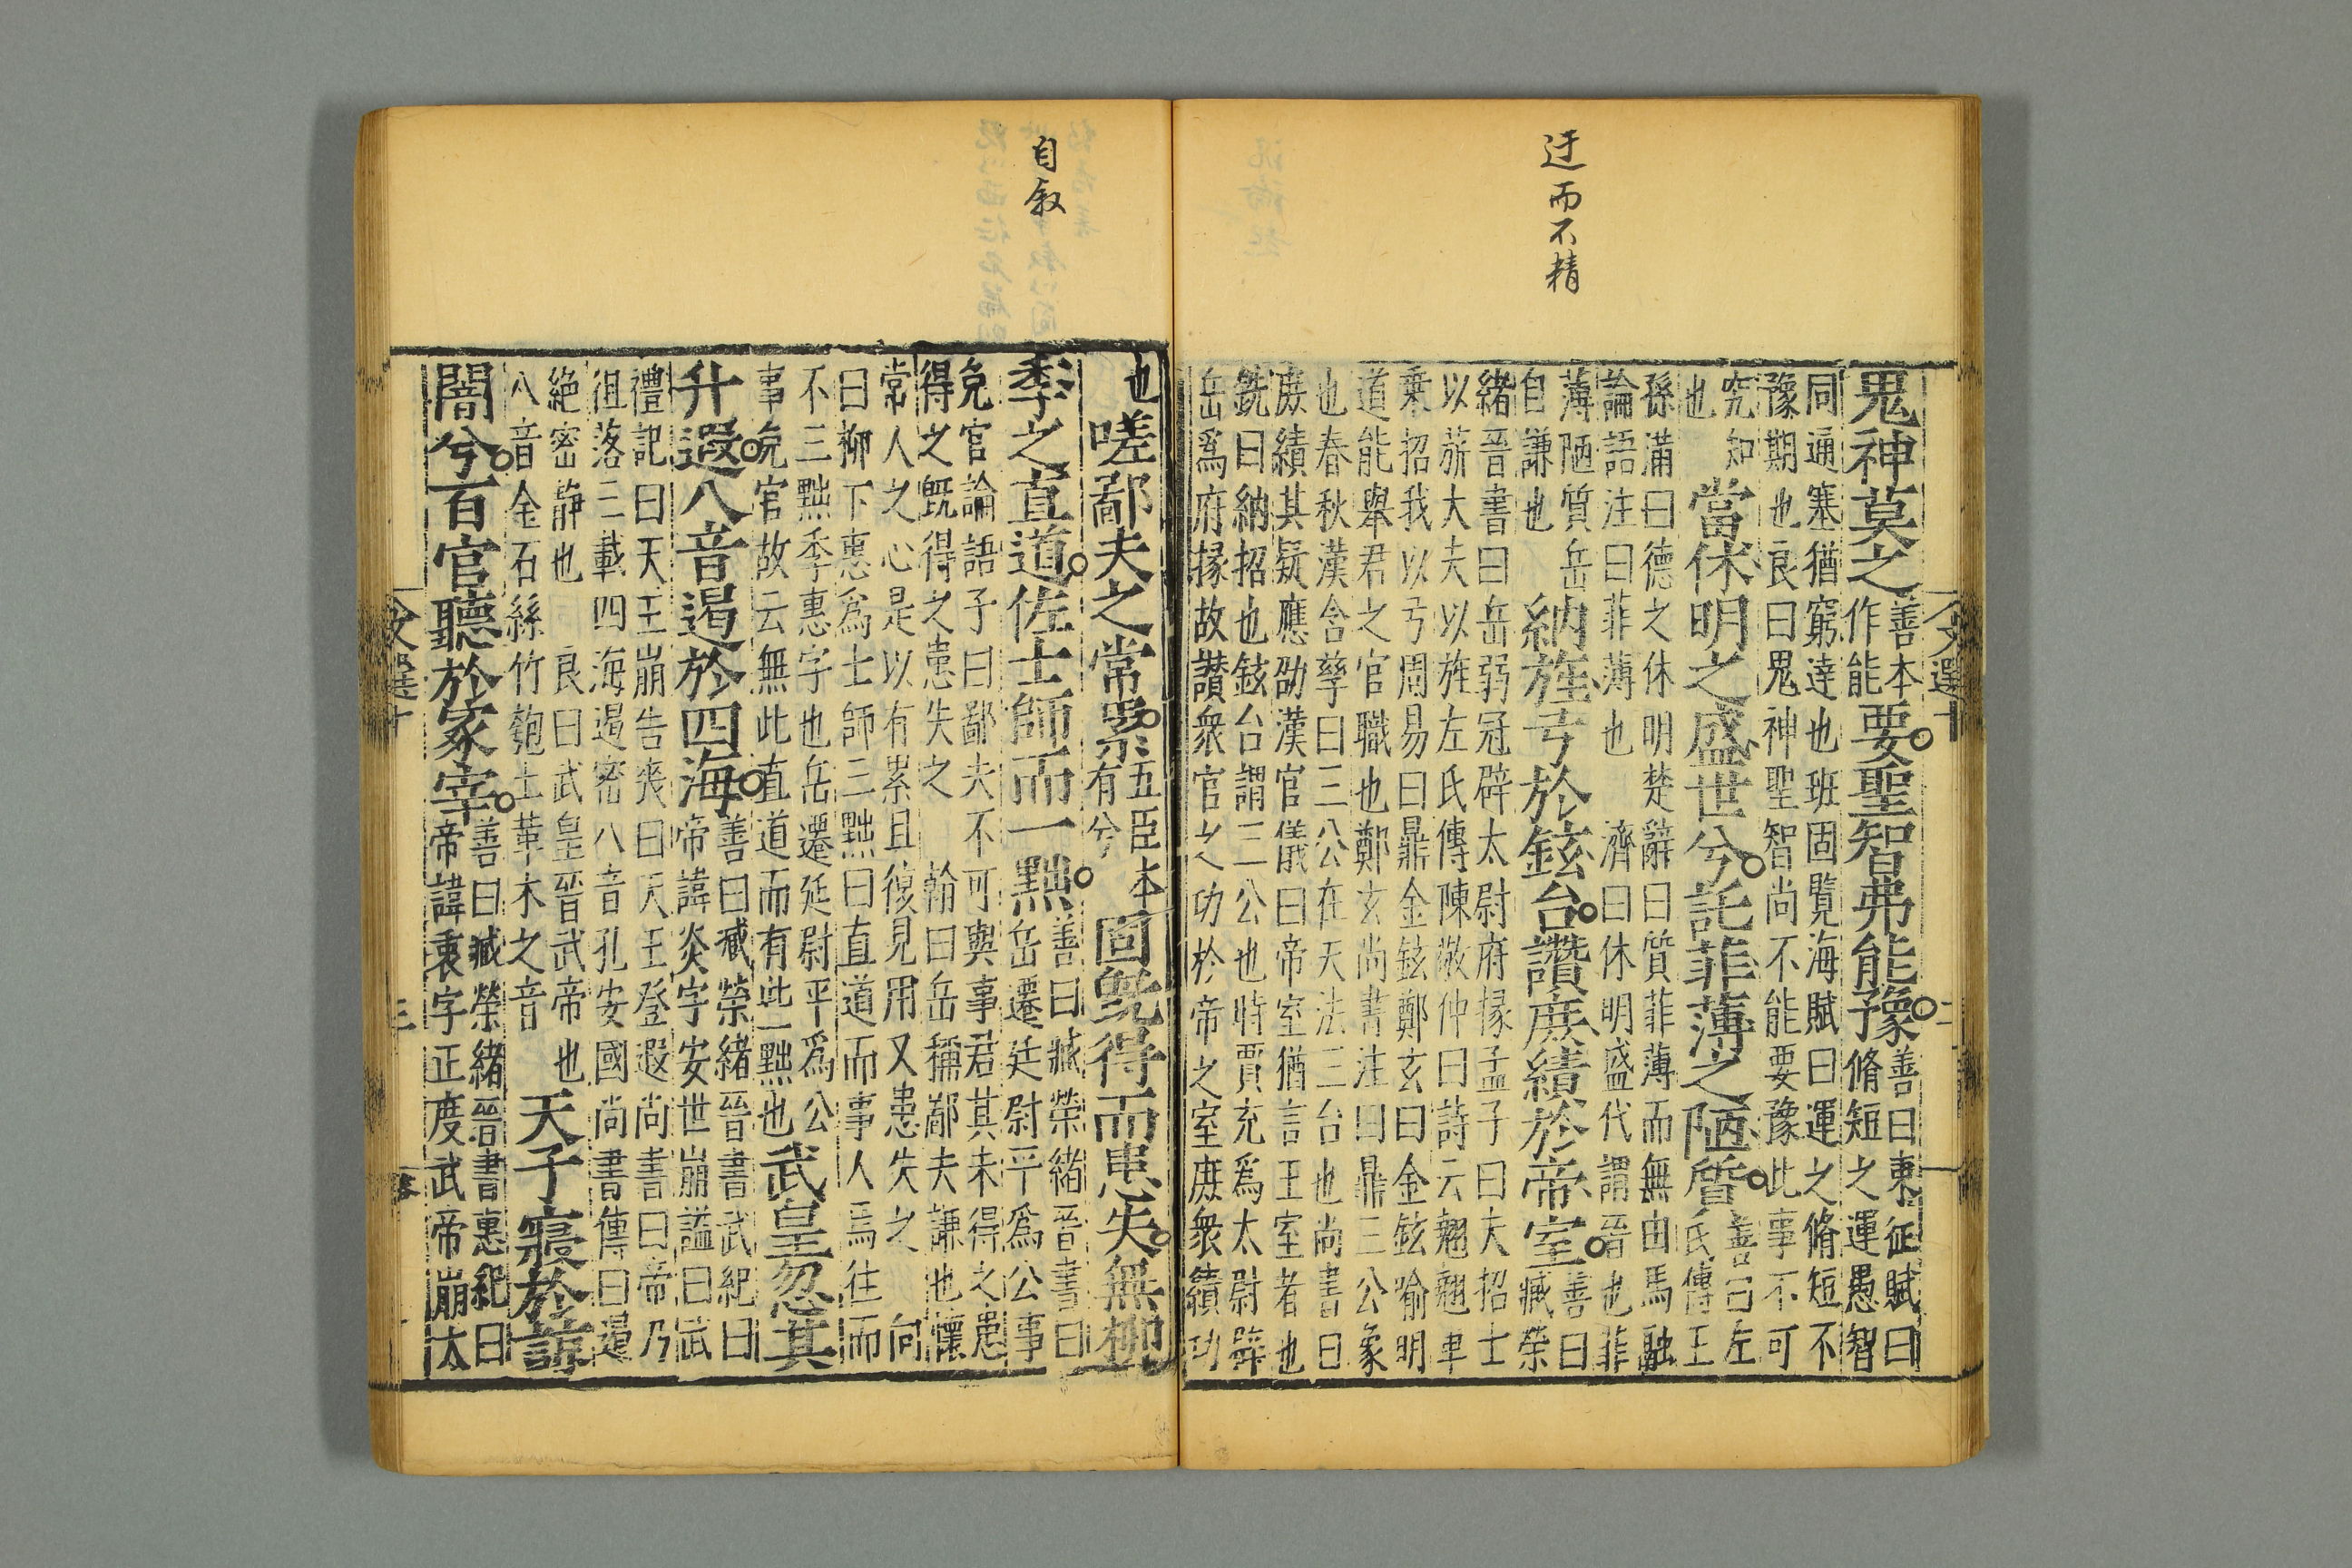 迂而不精
鬼神莫之善本作能要聖智弗能豫善曰東征賦曰脩短之運愚智
同通塞猶窮達也班固覽海賦曰運之脩短不
豫期也良曰鬼神聖智尚不能要豫此事不可
究知也當休明之盛世兮託菲薄之陋質善曰左氏傳王
孫滿曰德之休明楚辭曰質菲薄而無由馬融
論語注曰菲薄也 濟曰休明盛代謂晉也菲
薄陋質岳自謙也納旌弓於鉉台讚庶績於帝室善曰臧榮
緒晉書曰岳弱冠辟太尉府掾孟子曰夫招士
以旂大夫以旌左氏傳陳敬仲曰詩云翹翹車
乘招我以弓周易曰鼎金鉉鄭玄曰金鉉喻明
道能舉君之官職也鄭玄尚書注曰鼎三公象
也春秋漢含孳曰三公在天法三台也尚書曰
庶績其疑應劭漢官儀曰帝室猶言王室者也
銑曰納招也鉉台謂三公也時賈充爲太尉辟
岳爲府掾故讃衆官之功於帝之室庶衆績功
文選十
二
自叙
也嗟鄙夫之常累五臣本有兮固旣得而患失無柳
季之直道佐士師而一黜善曰臧榮緒晉書曰岳遷廷尉平爲公事
免官論語子曰鄙夫不可與事君其未得之患
得之旣得之患失之 翰曰岳稱鄙夫謙也懷
常人之心是以有累且復見用又患失之 向
曰柳下惠爲士師三黜曰直道而事人焉往而
不三黜季惠字也岳遷延尉平爲公
事免官故云無此直道而有此一黜也武皇忽其
升遐八音遏於四海善曰臧榮緒晉書武紀曰帝諱炎字安世崩謚曰武
禮記曰天王崩告喪曰天王登遐尚書曰帝乃
徂落三載四海遏密八音孔安國尚書傳曰遏
絶密静也 良曰武皇晉武帝也
八音金石絲竹匏土革木之音天子寢於諒
闇兮百官聽於冢宰善曰臧榮緒晉書惠紀曰帝諱衷字正度武帝崩太
文選十
三